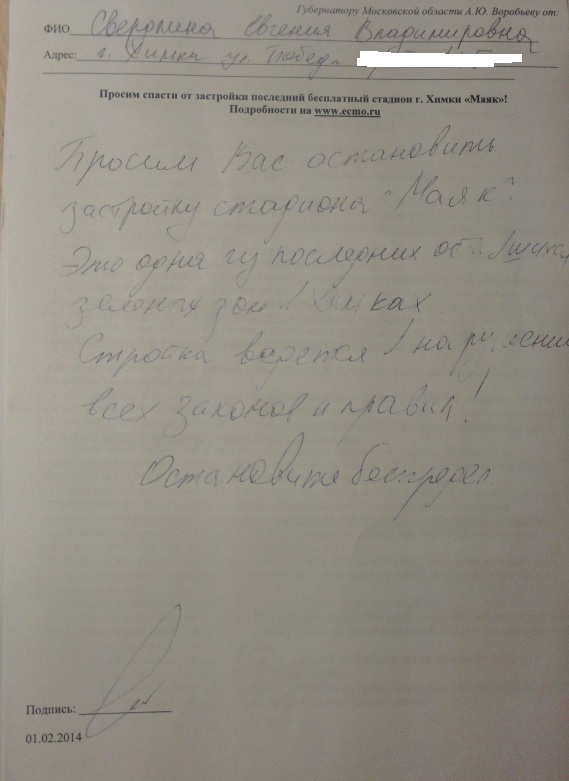 Губернатору Московской области А.Ю. Воробьеву от:
ФИО Сверопина Евгения Владимировна
Адрес: г. Химки ул. Победы
Просим спасти от застройки последний бесплатный стадион г. Химки «Маяк»!
Подробности на www.ecmo.ru
Просим Вас остановить
застройку стадиона "Маяк".
Это одна из последних
зеленых зон в Химках
Стройка ведется в нарушении
всех законов и правил!
Остановите беспредел.
Подпись:
01.02.2014